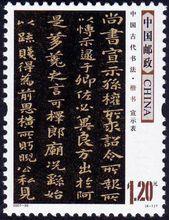 尚書宣示孫權所求詔令所報所
以博示逮于卿佐必冀良方出於阿
是芻蕘之言可擇郎廟況繇始
以疏賤得為前恩橫所盱睨公私
中国邮政 CHINA
中国古代书法·楷书 宣示表
1.20元
2007-30